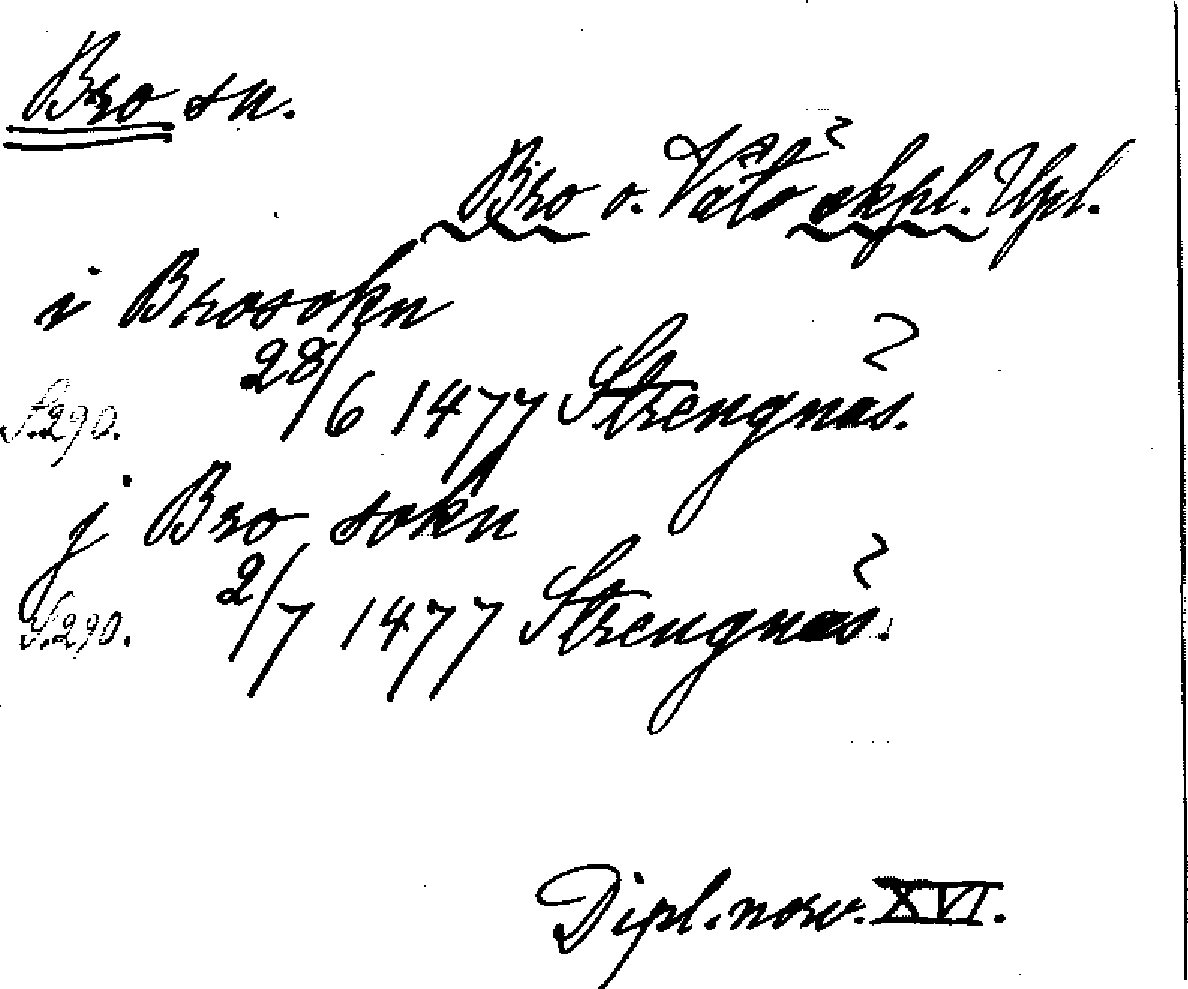 Bro sn.
Bro o. Vätö skpl. Upl.
i Brosokn
28/6 1477 Strengnäs.
S. 290.
j Bro sokn
2/7 1477 Strengnäs.
S. 290.
Dipl. norv. XVI.